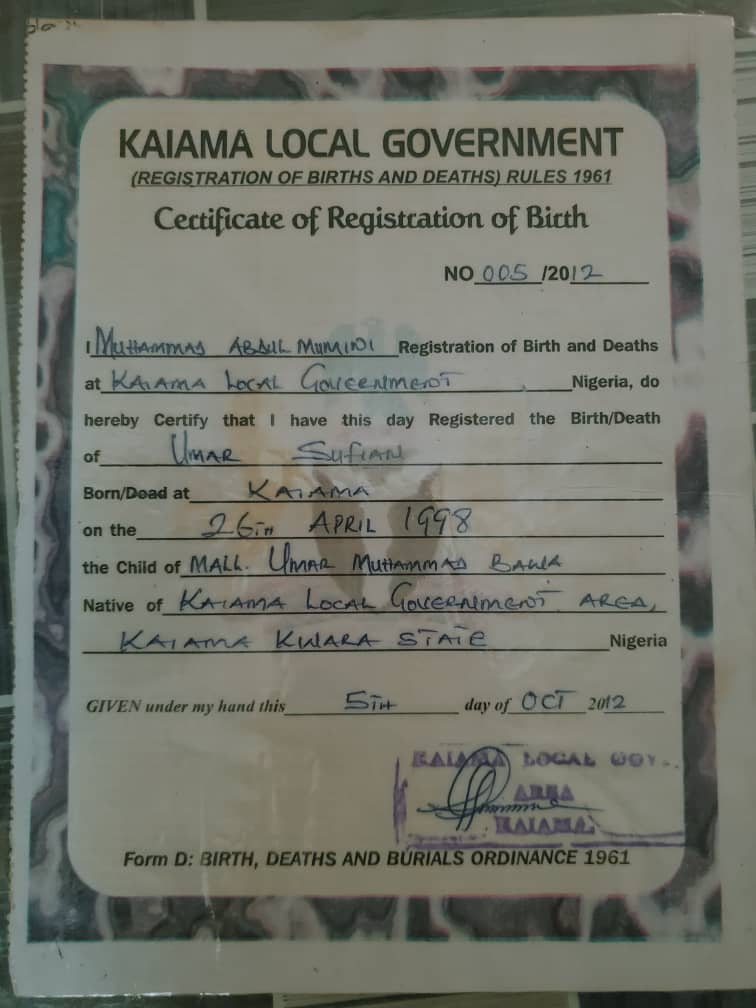 KAIAMA LOCAL GOVERNMENT
(REGISTRATION OF BIRTHS AND DEATHS) RULES 1961
Certificate of Registration of Birth
NO 005 /2012
I MUHAMMAD ABDUL MUMINI Registration of Birth and Deaths
at KAIAMA LOCAL GOVERNMENT Nigeria, do
hereby Certify that I have this day Registered the Birth/Death
of UMAR SUFIAN
Born/Dead at KAIAMA
on the 26TH APRIL 1998
the Child of MALL. UMAR MUHAMMAD BAWA
Native of KAIAMA LOCAL GOVERNMENT AREA,
KAIAMA KWARA STATE Nigeria
GIVEN under my hand this 5TH day of OCT 2012
KAIAMA LOCAL GOVT.
AREA
KAIAMA.
Form D: BIRTH, DEATHS AND BURIALS ORDINANCE 1961